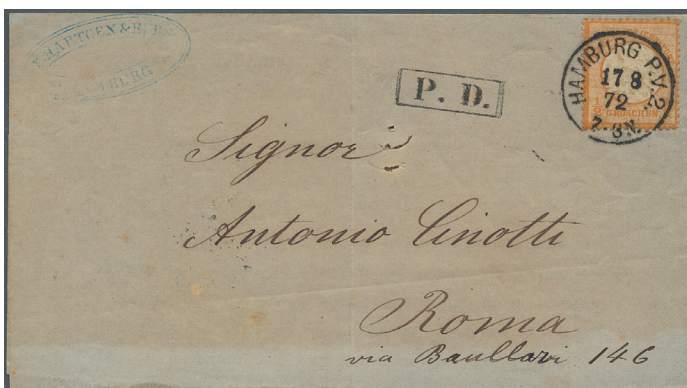 HAMBURG
P. D.
HAMBURG P.V.2.
17 8
72
7-8N.
1/2 GROSCHEN
Signor
Antonio Cinotti
Roma
via Baullari 146